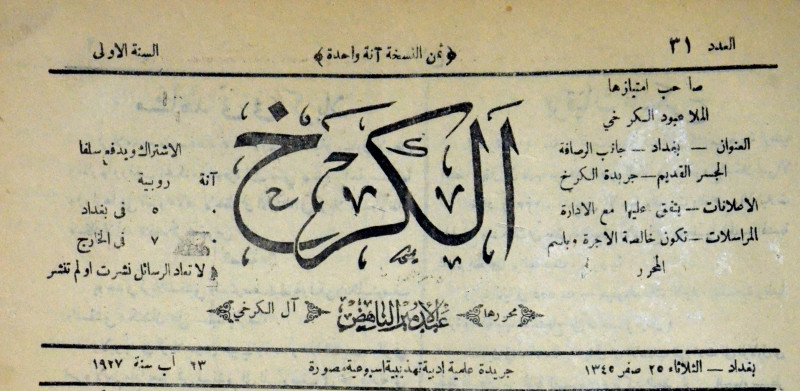 العدد ٣١
﴿ ثمن النسخة آنة واحدة ﴾
السنة الاولى
صاحب امتيازها
الملا عبود الكرخي
العنوان — بغداد — جانب الرصافة
الجسر القديم — جريدة الكرخ
الاعلانات — يتفق عليها مع الادارة
المراسلات — تكون خالصة الاجرة وباسم
المحرر
الكرخ
الاشتراك ويدفع سلفا
آنة روبية
٠ ٥ في بغداد
٠ ٧ في الخارج
لا تعاد الرسائل نشرت او لم تنشر
محررها عبدالامير الناهض آل الكرخي
بغداد — الثلاثاء ٢٥ صفر ١٣٤٥
جريدة علمية ادبية تهذيبية اسبوعية مصورة
٢٣ آب سنة ١٩٢٧